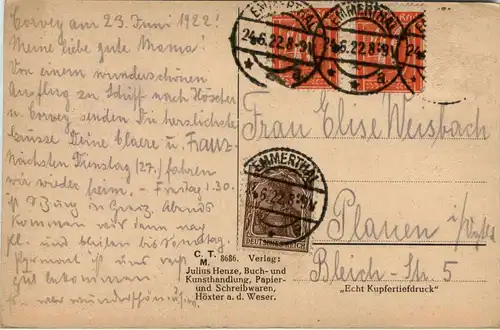 Corvey am 23. Juni 1922!
Meine liebe gute Mama!
Von einem wunderschönen
Ausflug zu Schiff nach Höxter
u. Corvey senden Dir herzlichste
Grüsse Deine Claere u. Franz.
Nächsten Dienstag (27.) fahren
wir wieder heim. - Freitag 1.30
Abends
kommen wir dann nach
u. bleiben bis Sonntag.
Pyrmont ist uns
gut bekommen.
wunderschön
EMMERTHAL
24.6.22.8-9V
a
EMMERTHAL
24.6.22.8-9V
a
Frau Elise Weisbach
EMMERTHAL
6.22.8-9V
a
DEUTSCHES REICH
Plauen i/
Bleich-Str. 5
C. T. M. 8686. Verlag:
Julius Henze, Buch- und
Kunsthandlung, Papier-
und Schreibwaren,
Höxter a. d. Weser.
„Echt Kupfertiefdruck"